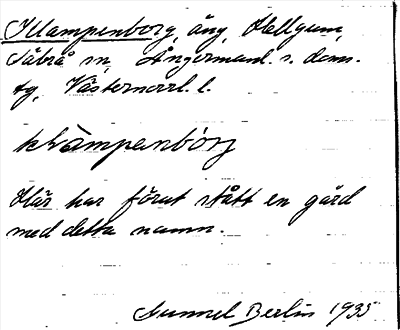 Klampenborg, äng, Hällgum,
Säbrå sn, Ångermanl. s. doms.
tg, Västernorrl. l.
klàmpenbórj
Här har förut stått en gård
med detta namn.
Gunnel Berlin 1935